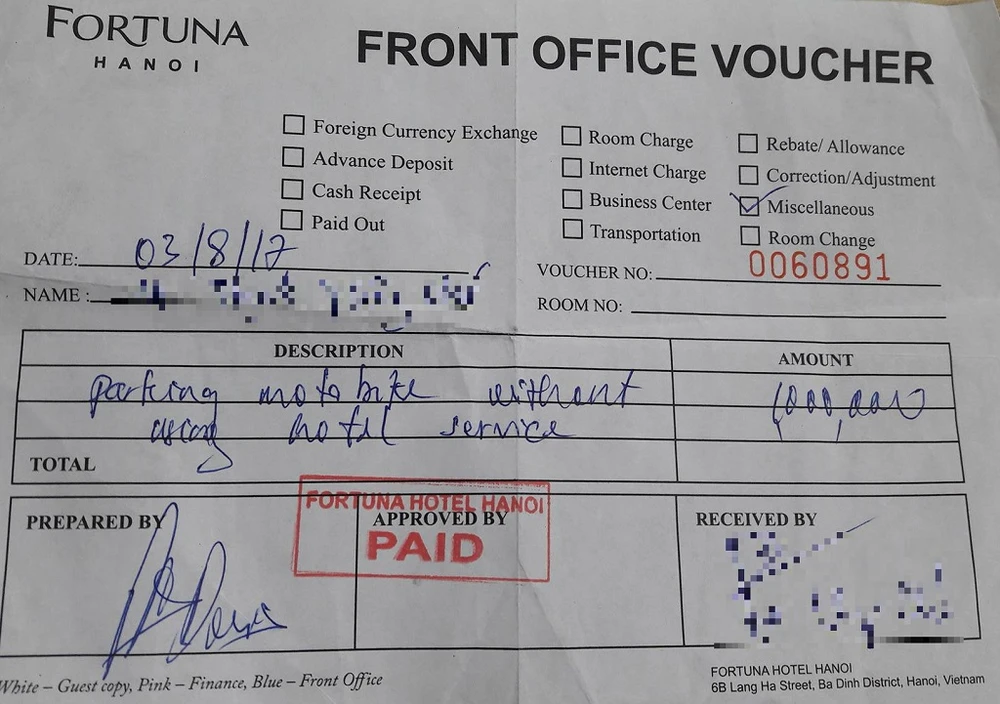 FORTUNA
HANOI
FRONT OFFICE VOUCHER
Foreign Currency Exchange
Advance Deposit
Cash Receipt
Paid Out
Room Charge
Internet Charge
Business Center
Transportation
Rebate/ Allowance
Correction/Adjustment
Miscellaneous
Room Change
DATE: 03/8/17
NAME :
VOUCHER NO: 0060891
ROOM NO:
DESCRIPTION AMOUNT
parking motobike without 1,000,000
using hotel service
TOTAL
PREPARED BY
FORTUNA HOTEL HANOI
APPROVED BY
PAID
RECEIVED BY
White – Guest copy, Pink – Finance, Blue – Front Office
FORTUNA HOTEL HANOI
6B Lang Ha Street, Ba Dinh District, Hanoi, Vietnam